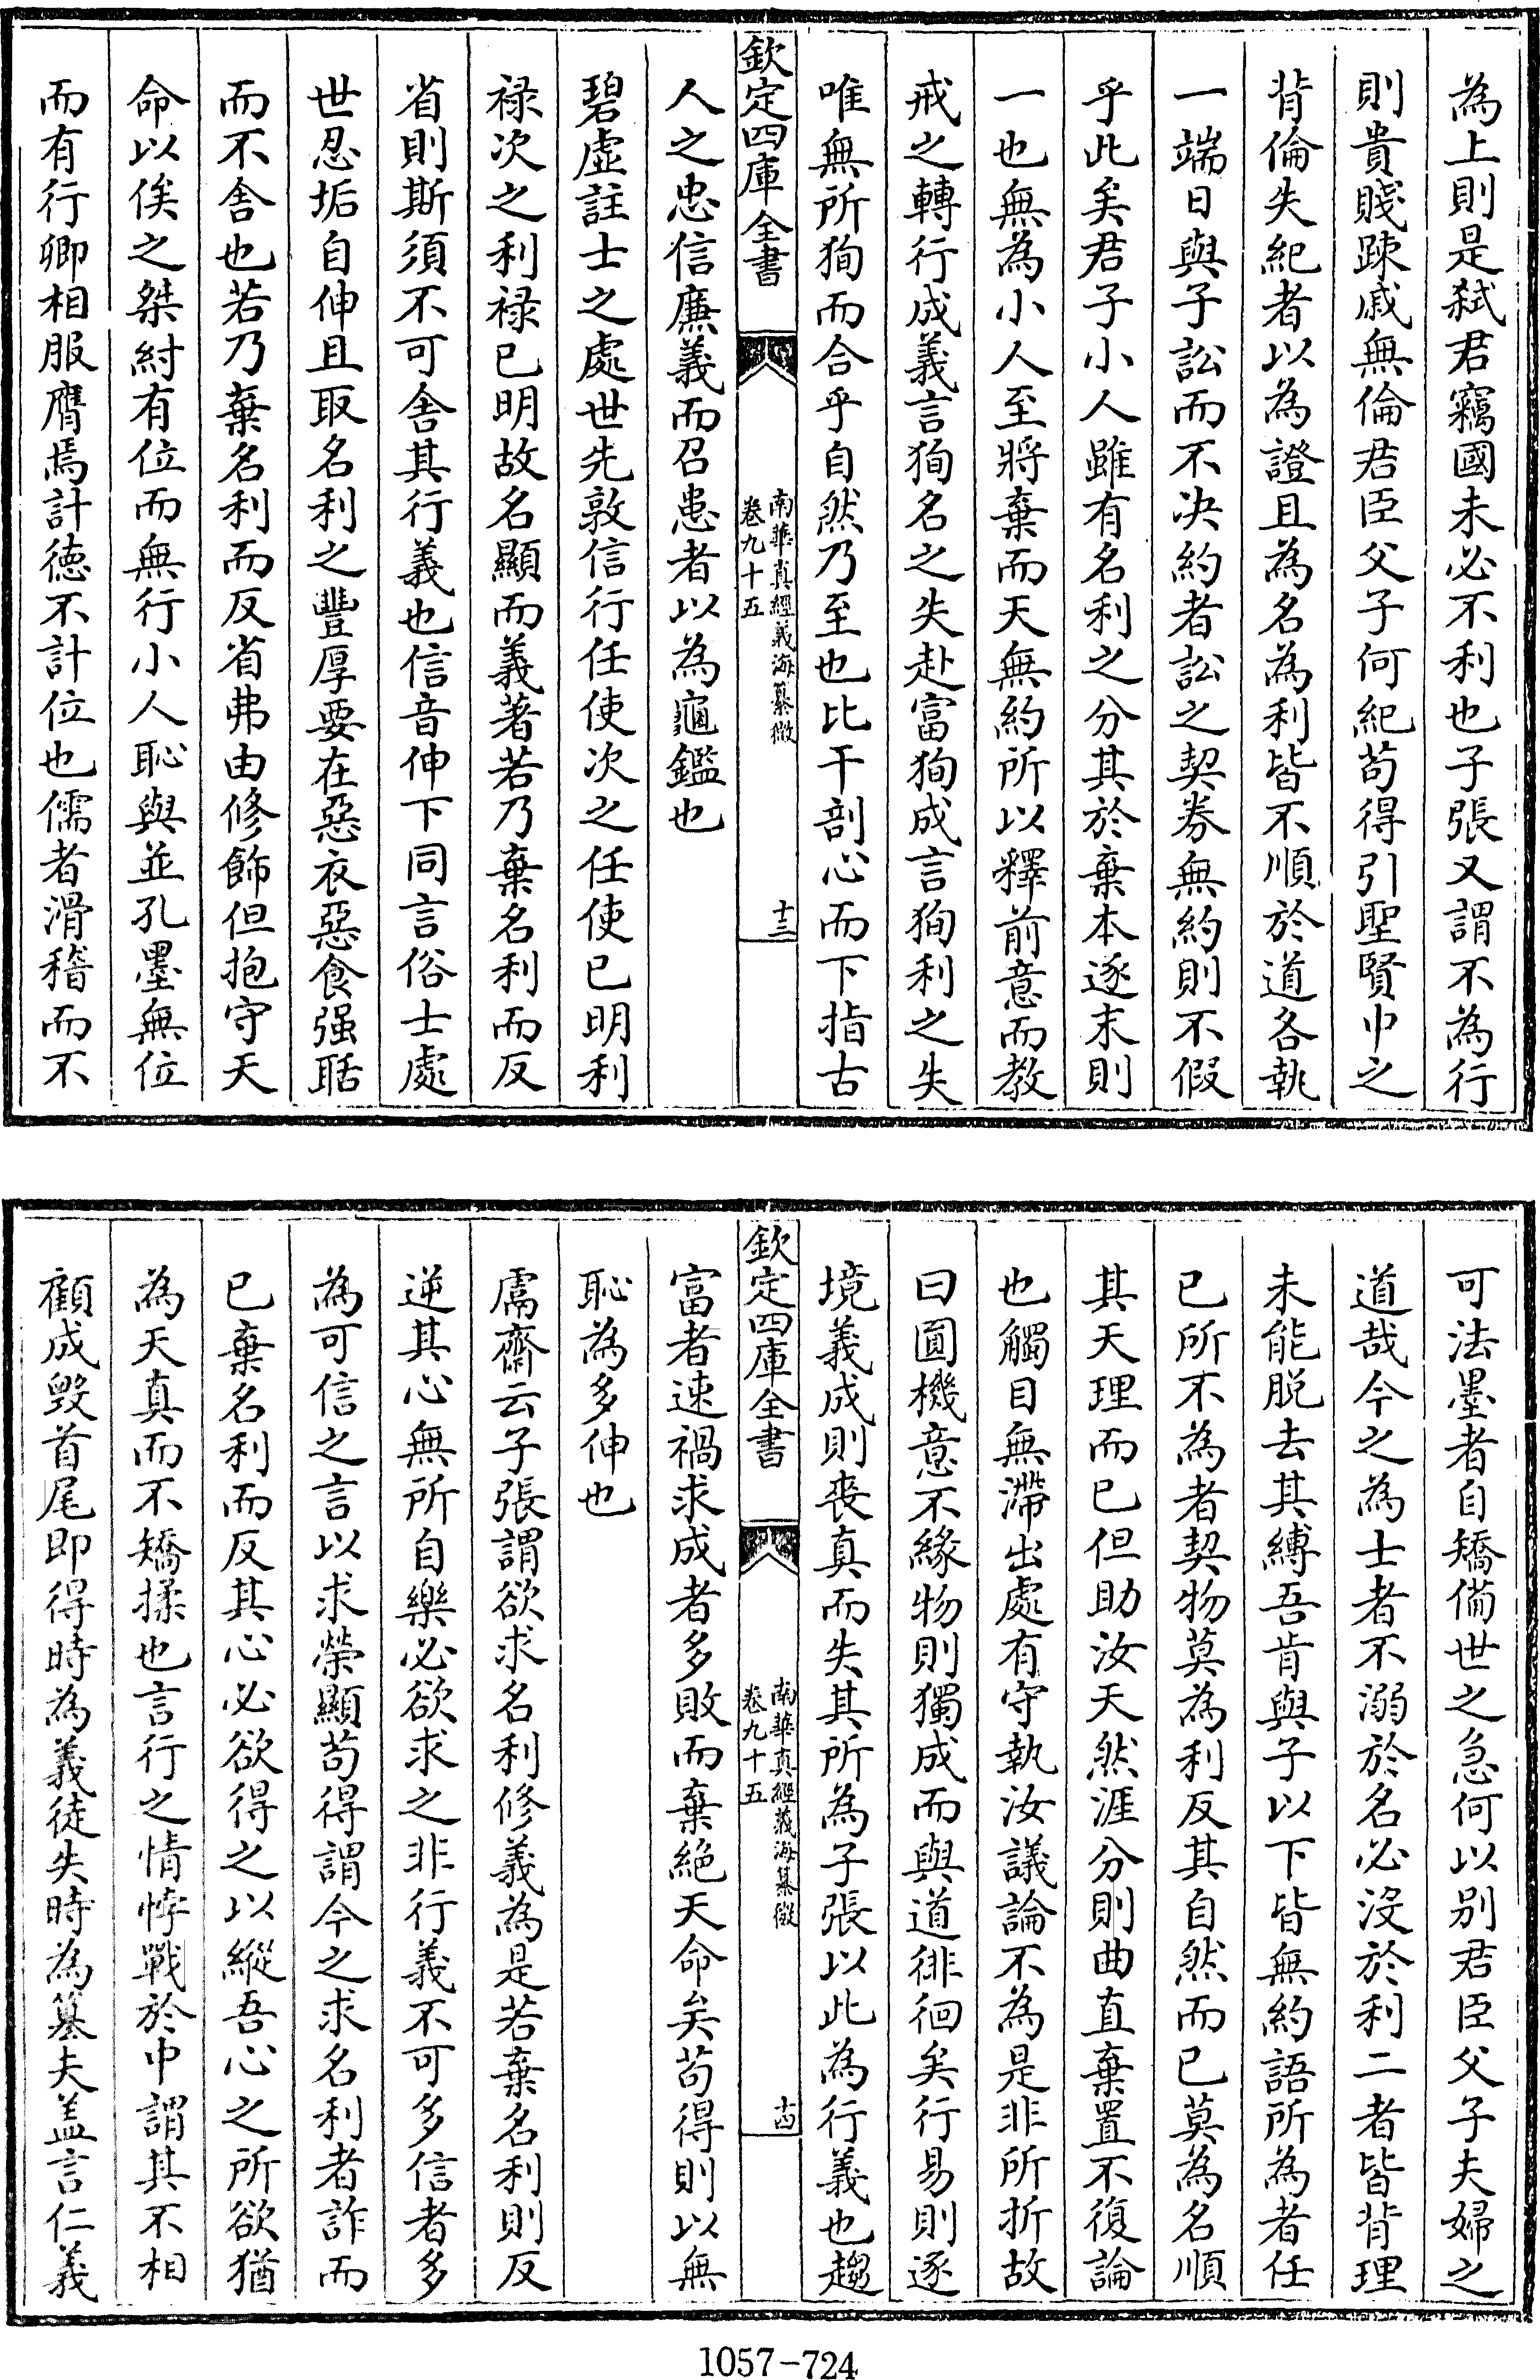 為上則是弑君竊國未必不利也子張又謂不為行
則貴賤疎戚無倫君臣父子何紀茍得引聖賢中之
背倫失紀者以為證且為名為利皆不順於道各執
一端日與子訟而不決約者訟之契券無約則不假
乎此矣君子小人雖有名利之分其於棄本逐末則
一也無為小人至將棄而天無約所以釋前意而教
戒之轉行成義言狥名之失赴富狥成言狥利之失
唯無所狥而合乎自然乃至也比干剖心而下指古
欽定四庫全書
南華真經義海纂微
卷九十五
十三
人之忠信廉義而召患者以為龜鑑也
碧虛註士之處世先敦信行任使次之任使已明利
禄次之利禄已明故名顯而義著若乃棄名利而反
省則斯須不可舍其行義也信音伸下同言俗士處
世忍垢自伸且取名利之豐厚要在惡衣惡食强聒
而不舍也若乃棄名利而反省弗由修飾但抱守天
命以俟之桀紂有位而無行小人恥與並孔墨無位
而有行卿相服膺焉計徳不計位也儒者滑稽而不
可法墨者自矯備世之急何以别君臣父子夫婦之
道哉今之為士者不溺於名必没於利二者皆背理
未能脱去其縛吾肯與子以下皆無約語所為者任
已所不為者契物莫為利反其自然而已莫為名順
其天理而已但助汝天然涯分則曲直棄置不復論
也觸目無滯出處有守執汝議論不為是非所折故
曰圓機意不緣物則獨成而與道徘徊矣行易則逐
境義成則喪真而失其所為子張以此為行義也趨
欽定四庫全書
南華真經義海纂微
卷九十五
十四
富者速禍求成者多敗而棄絶天命矣茍得則以無
恥為多伸也
鬳齋云子張謂欲求名利修義為是若棄名利則反
逆其心無所自樂必欲求之非行義不可多信者多
為可信之言以求榮顯茍得謂今之求名利者詐而
已棄名利而反其心必欲得之以縱吾心之所欲猶
為天真而不矯揉也言行之情悖戰於中謂其不相
顧成毁首尾即得時為義徒失時為簒夫盖言仁義
1057-724